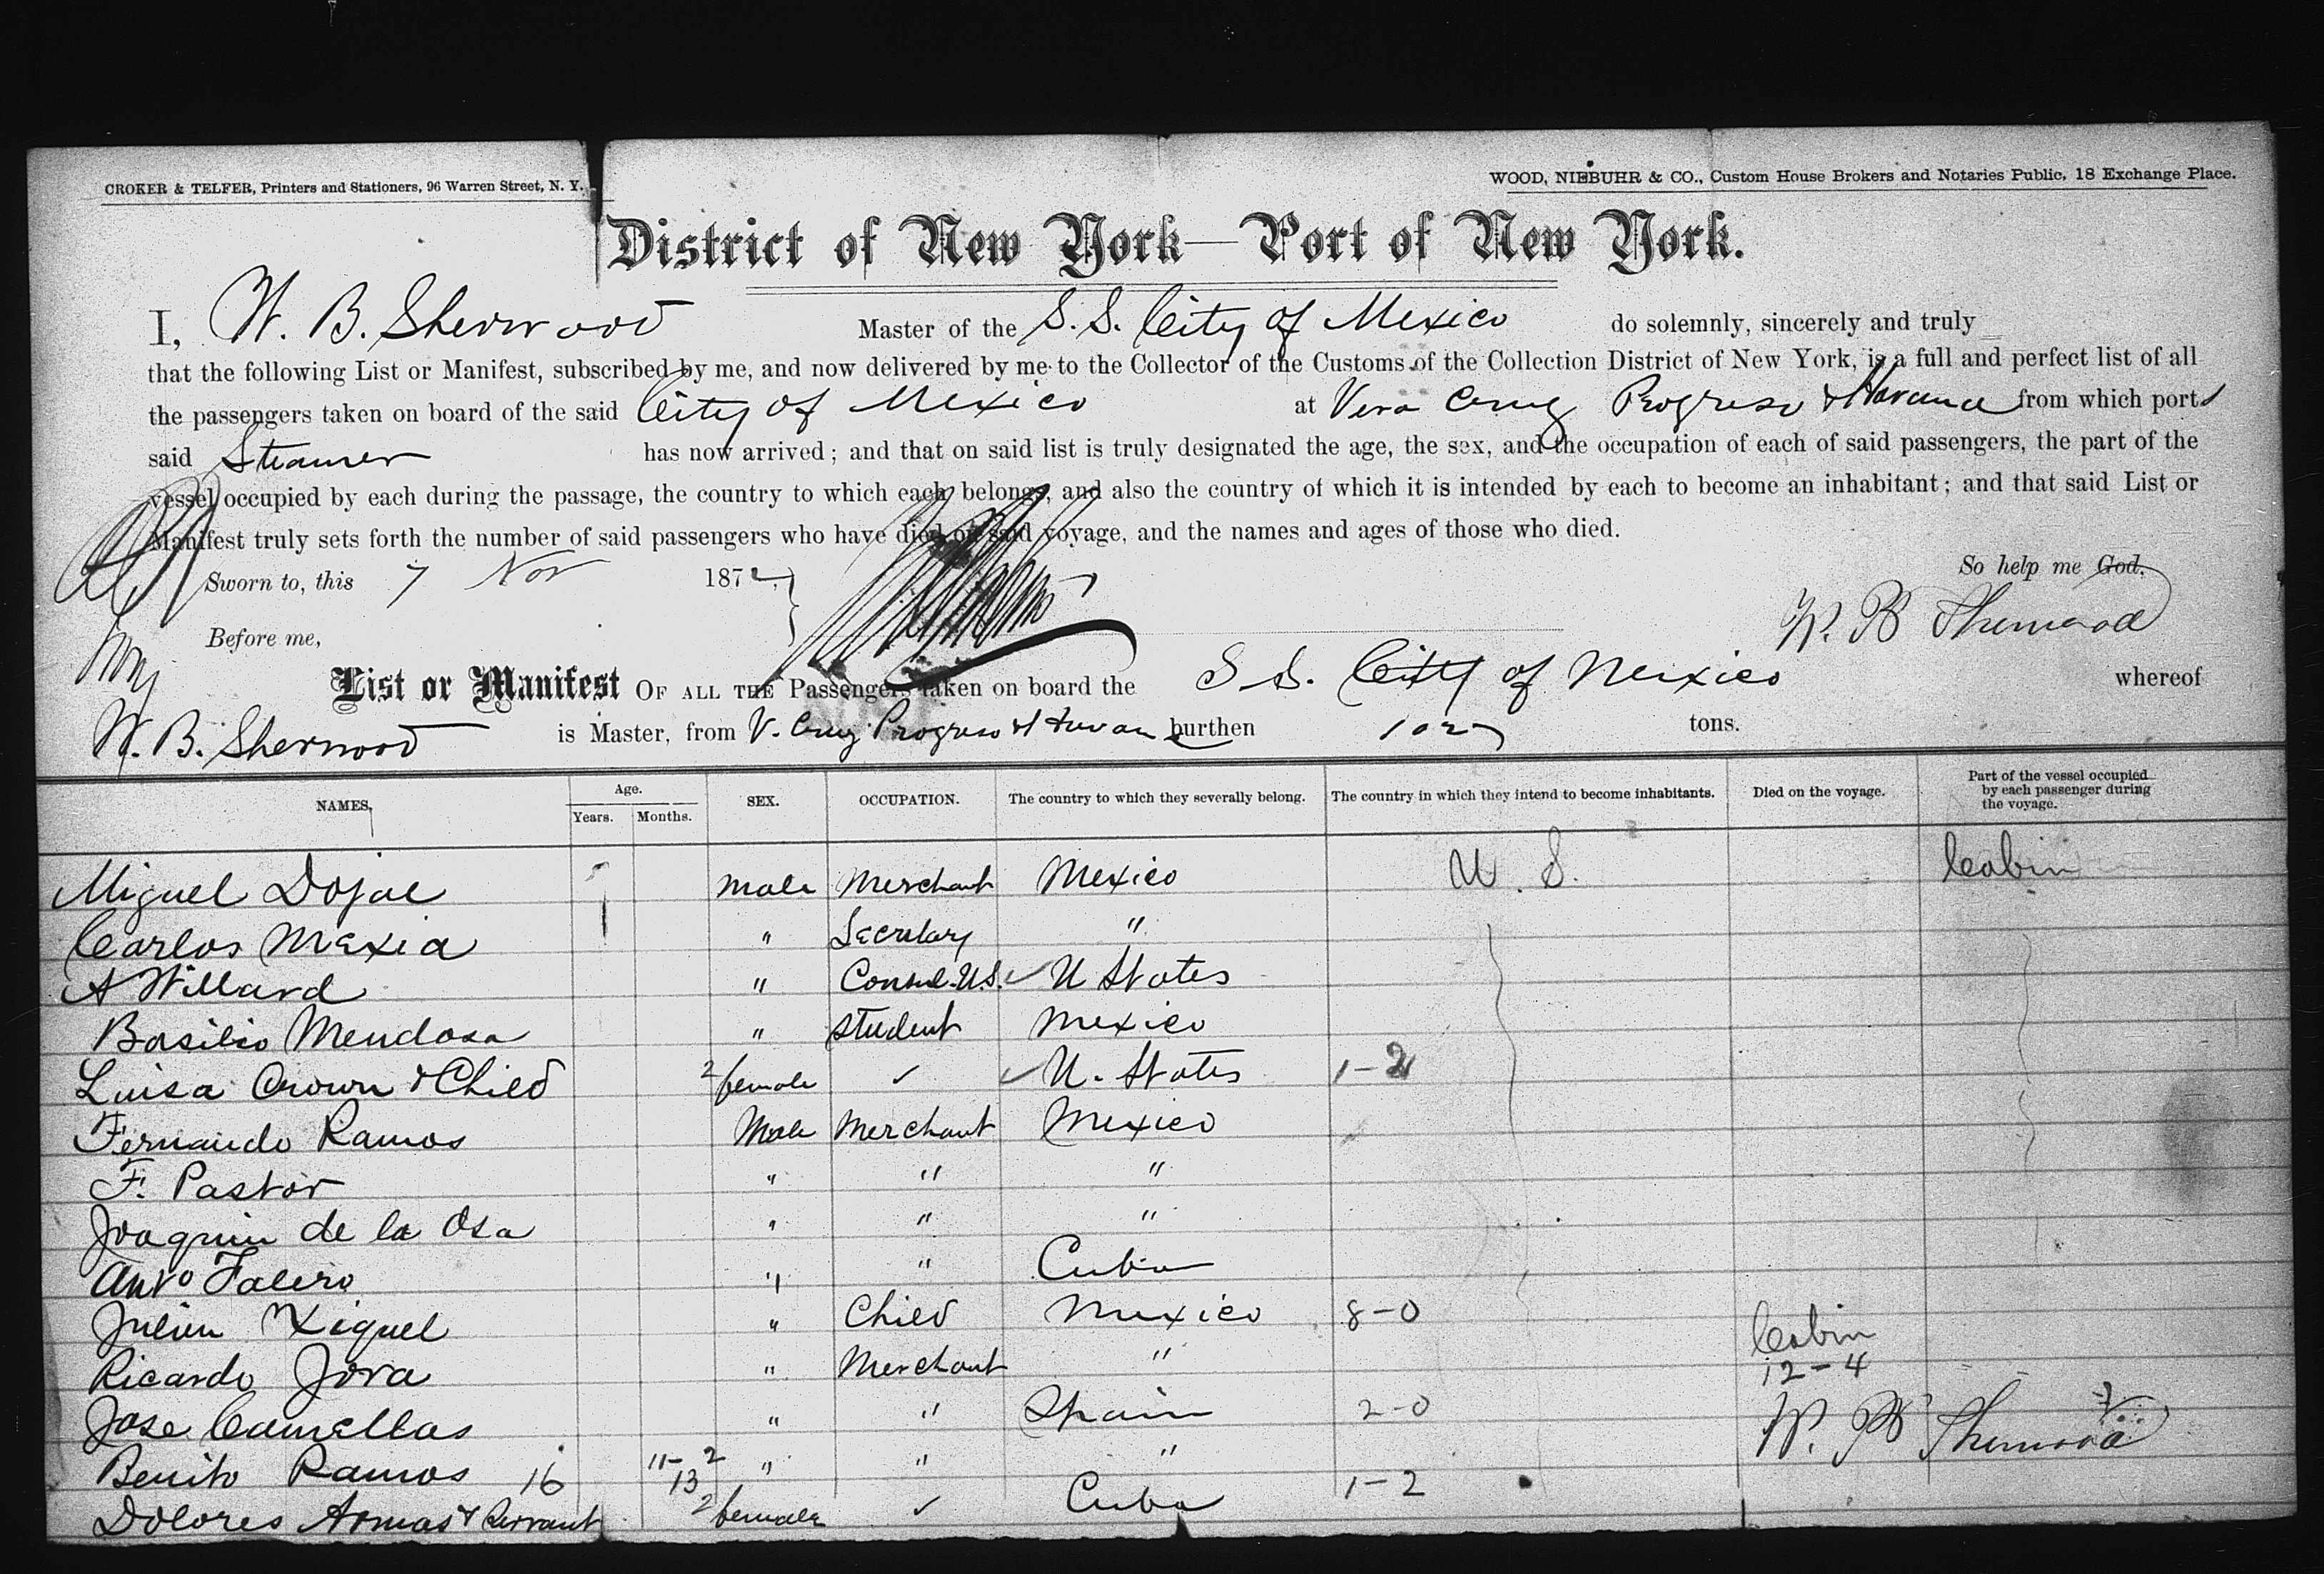 CROKER & TELFER, Printers and Stationers, 96 Warren Street, N. Y.
WOOD, NIEBUHR & CO., Custom House Brokers and Notaries Public, 18 Exchange Place.
District of New York—Port of New York.
I, W. B. Sherwood Master of the S. S. City of Mexico do solemnly, sincerely and truly
that the following List or Manifest, subscribed by me, and now delivered by me to the Collector of the Customs of the Collection District of New York, is a full and perfect list of all
the passengers taken on board of the said City of Mexico at Vera Cruz Progreso & Havana from which ports
said Steamer has now arrived; and that on said list is truly designated the age, the sex, and the occupation of each of said passengers, the part of the
vessel occupied by each during the passage, the country to which each belongs, and also the country of which it is intended by each to become an inhabitant; and that said List or
Manifest truly sets forth the number of said passengers who have died on said voyage, and the names and ages of those who died.
So help me God.
Sworn to, this 7 Nov 1872.
W. B Sherwood
Before me,
List or Manifest OF ALL THE Passengers taken on board the S S. City of Mexico whereof
W. B. Sherwood is Master, from V. Cruz Progreso & Havana burthen 1027 tons.
NAMES, Age. Years. Months. SEX. OCCUPATION. The country to which they severally belong. The country in which they intend to become inhabitants. Died on the voyage. Part of the vessel occupied by each passenger during the voyage.
Miguel male Merchant Mexico U. S. Cabin
Carlos Mexia " Secretary "
A Willard " Consul U.S. U States
Basilio Mendosa " student Mexico
Luisa Crown & Child 2 female ✓ U. States 1-2
Fernando Ramos Male Merchant Mexico
F. Pastor " " "
Joaquin de la Osa " " "
Anto Falero " " Cuba
Julian Xiquel " Child Mexico 8-0 Cabin
Ricardo Jova " Merchant " 12-4
Jose Camellas " " Spain 2-0 W. B Sherwood
Benito Ramos 16 11-2 13 " " "
Dolores Armas & Servant 2 female ✓ Cuba 1-2